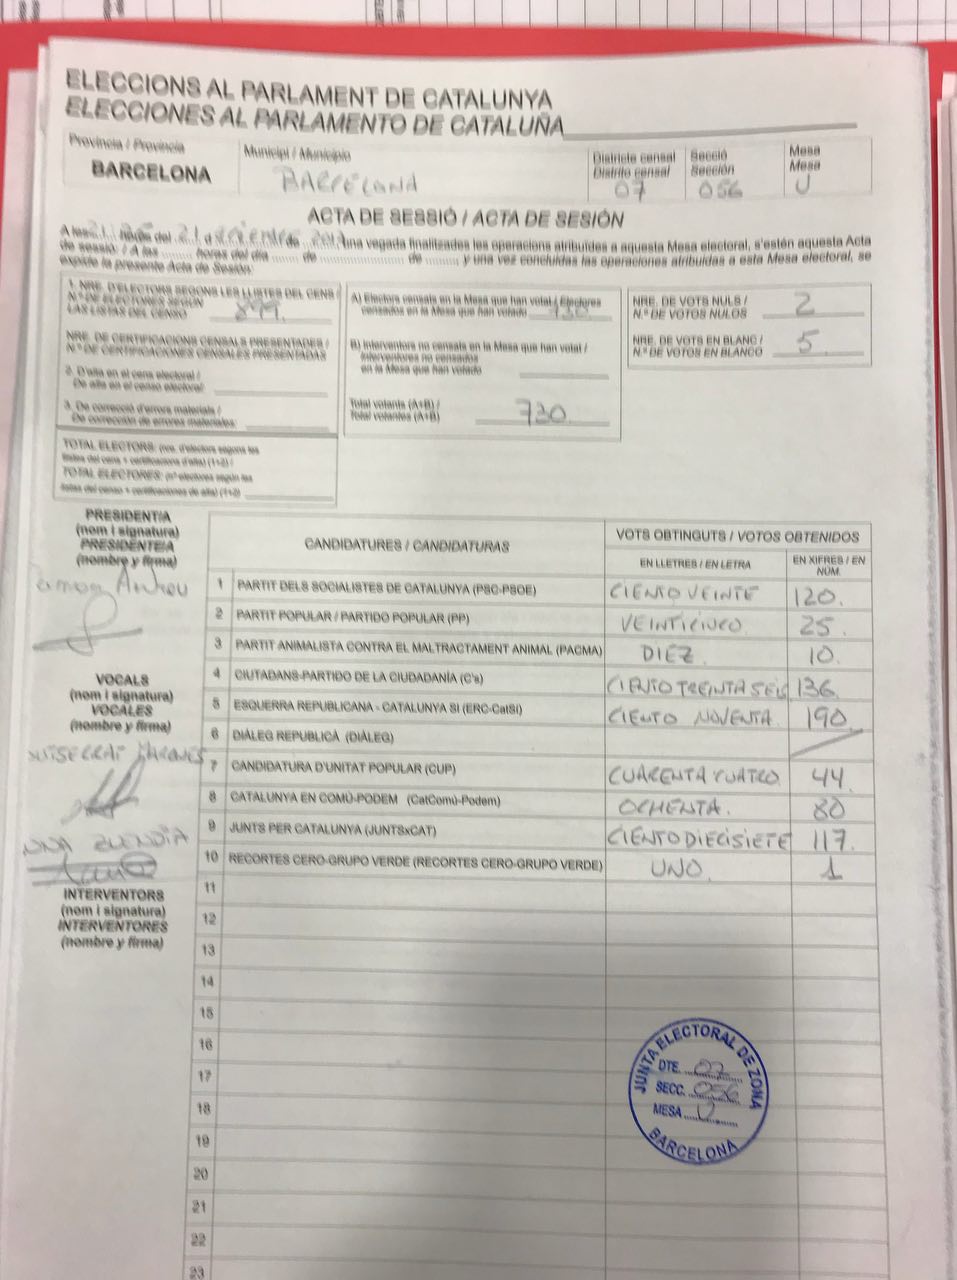 ELECCIONS AL PARLAMENT DE CATALUNYA
ELECCIONES AL PARLAMENTO DE CATALUÑA
Provincia / Provincia
BARCELONA
Municipi / Municipio
BARCELONA
Districte censal
Distrito censal
07
Secció
Sección
056
Mesa
Mesa
U
ACTA DE SESSIÓ / ACTA DE SESIÓN
A les 21 hores del 21 d de una vegada finalitzades les operacions atribuïdes a aquesta Mesa electoral, s'estén aquesta Acta
de sessió: / A las ........ horas del día ...... de .................... de ........, y una vez concluidas las operaciones atribuidas a esta Mesa electoral, se
expide la presente Acta de Sesión:
1. NRE. D'ELECTORS SEGONS LES LLISTES DEL CENS /
N.º DE ELECTORES SEGÚN
LAS LISTAS DEL CENSO 899.
NRE. DE CERTIFICACIONS CENSALS PRESENTADES /
N.º DE CERTIFICACIONES CENSALES PRESENTADAS
2. D'alta en el cens electoral /
De alta en el censo electoral:
3. De correcció d'errors materials /
De corrección de errores materiales:
TOTAL ELECTORS: (nre. d'electors segons les
llistes del cens + certificacions d'alta) (1+2) /
TOTAL ELECTORES: (nº electores según las
listas del censo + certificaciones de alta) (1+2)
A) Electors censats en la Mesa que han votat / Electores
censados en la Mesa que han votado 730
B) Interventors no censats en la Mesa que han votat /
Interventores no censados
en la Mesa que han votado
Total votants (A+B) /
Total votantes (A+B) 730.
NRE. DE VOTS NULS /
N.º DE VOTOS NULOS 2
NRE. DE VOTS EN BLANC /
N.º DE VOTOS EN BLANCO 5
PRESIDENT/A
(nom i signatura)
PRESIDENTE/A
(nombre y firma)
Andreu
VOCALS
(nom i signatura)
VOCALES
(nombre y firma)
INTERVENTORS
(nom i signatura)
INTERVENTORES
(nombre y firma)
CANDIDATURES / CANDIDATURAS
VOTS OBTINGUTS / VOTOS OBTENIDOS
EN LLETRES / EN LETRA
EN XIFRES / EN
NÚM.
1 PARTIT DELS SOCIALISTES DE CATALUNYA (PSC-PSOE) CIENTO VEINTE 120.
2 PARTIT POPULAR / PARTIDO POPULAR (PP) VEINTICINCO 25.
3 PARTIT ANIMALISTA CONTRA EL MALTRACTAMENT ANIMAL (PACMA) DIEZ. 10.
4 CIUTADANS-PARTIDO DE LA CIUDADANÍA (C's) CIENTO TREINTA SEIS 136.
5 ESQUERRA REPUBLICANA - CATALUNYA SI (ERC-CatSí) CIENTO NOVENTA 190.
6 DIÀLEG REPUBLICÀ (DIÀLEG)
7 CANDIDATURA D'UNITAT POPULAR (CUP) CUARENTA Y CUATRO 44.
8 CATALUNYA EN COMÚ-PODEM (CatComú-Podem) OCHENTA. 80
9 JUNTS PER CATALUNYA (JUNTSxCAT) CIENTO DIECISIETE 117.
10 RECORTES CERO-GRUPO VERDE (RECORTES CERO-GRUPO VERDE) UNO. 1
11
12
13
14
15
16
17
18
19
20
21
22
23
JUNTA ELECTORAL DE ZONA
DTE. 07
SECC. 056
MESA U
BARCELONA